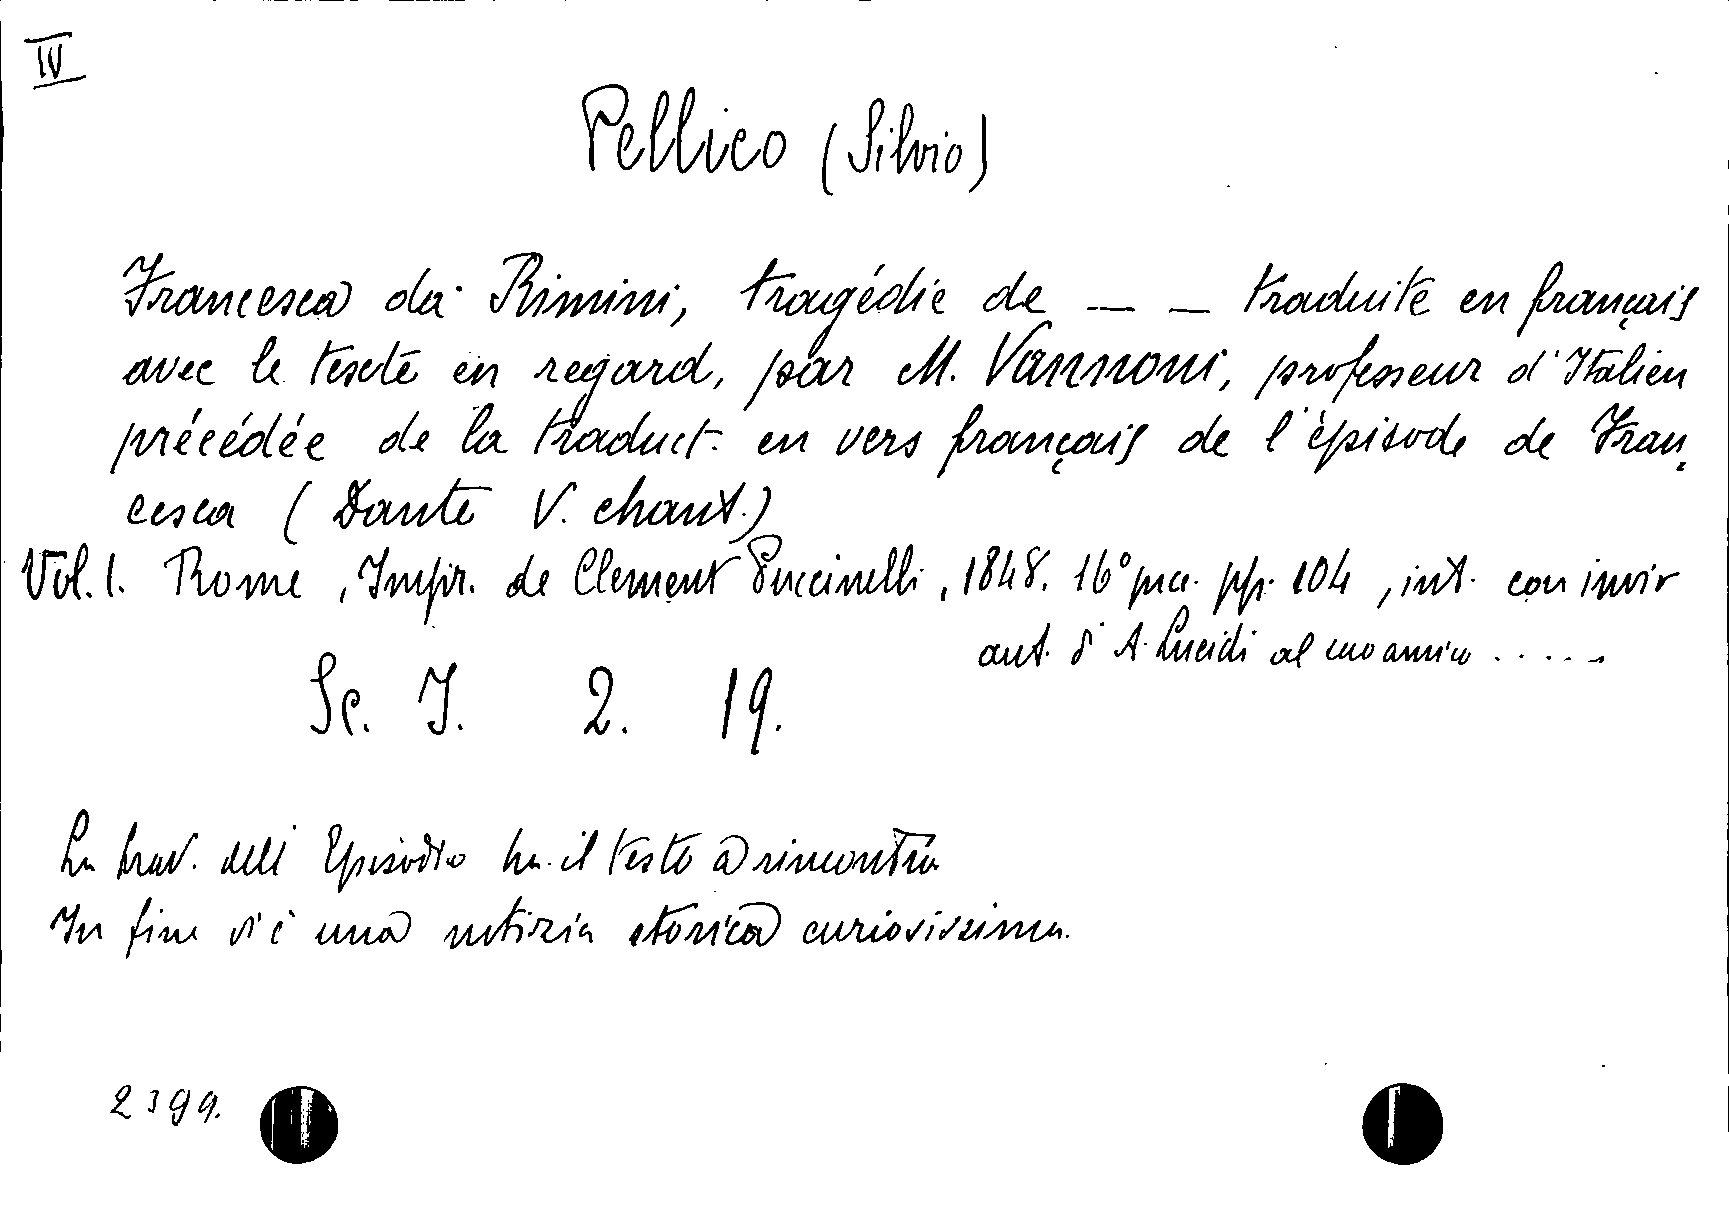 IV
Pellico (Silvio)
Francesca da Rimini, tragédie de — — traduite en français
avec le texte en regard, par M. Vannoni, professeur d'Italien
précédée de la traduct. en vers français de l'épisode de Fran
cesca (Dante V. chant.)
Vol. 1. Rome, Impr. de Clement Puccinelli, 1848. 16° pp. 104, int. con invio
aut. d'A. Lucidi al suo amico .....
Sc. I. 2. 19.
La trad. dell'Episodio ha il testo a rincontro
In fine vi è una notizia storica curiosissima.
2399.